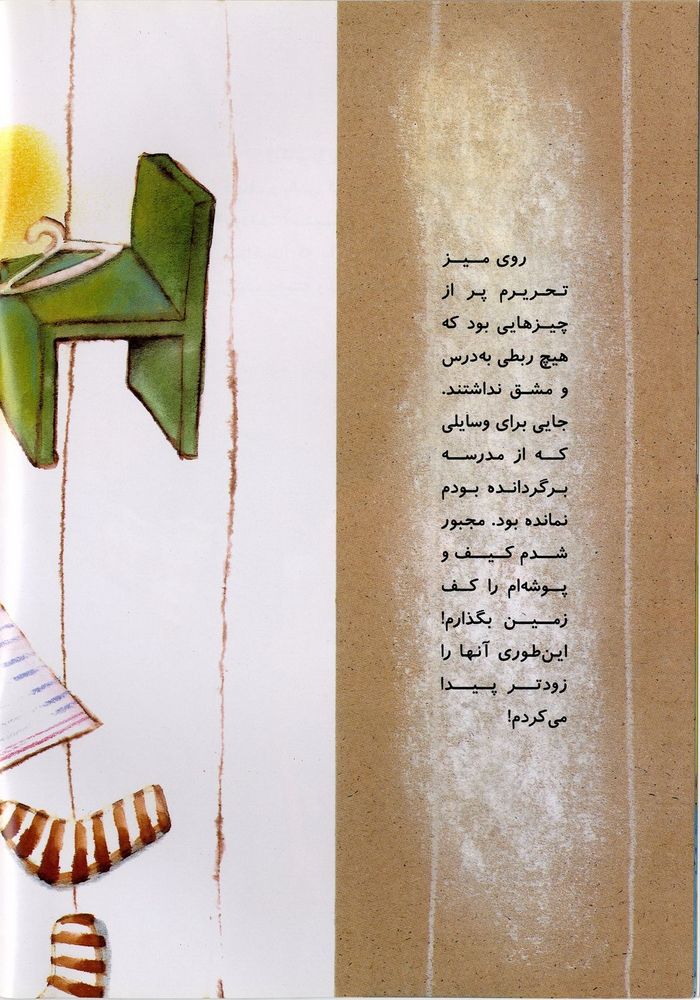 روی میز
تحریرم پر از
چیزهایی بود که
هیچ ربطی به‌درس
و مشق نداشتند.
جایی برای وسایلی
که از مدرسه
برگردانده بودم
نمانده بود. مجبور
شدم کیف و
پوشه‌ام را کف
زمین بگذارم!
این‌طوری آنها را
زودتر پیدا
می‌کردم!